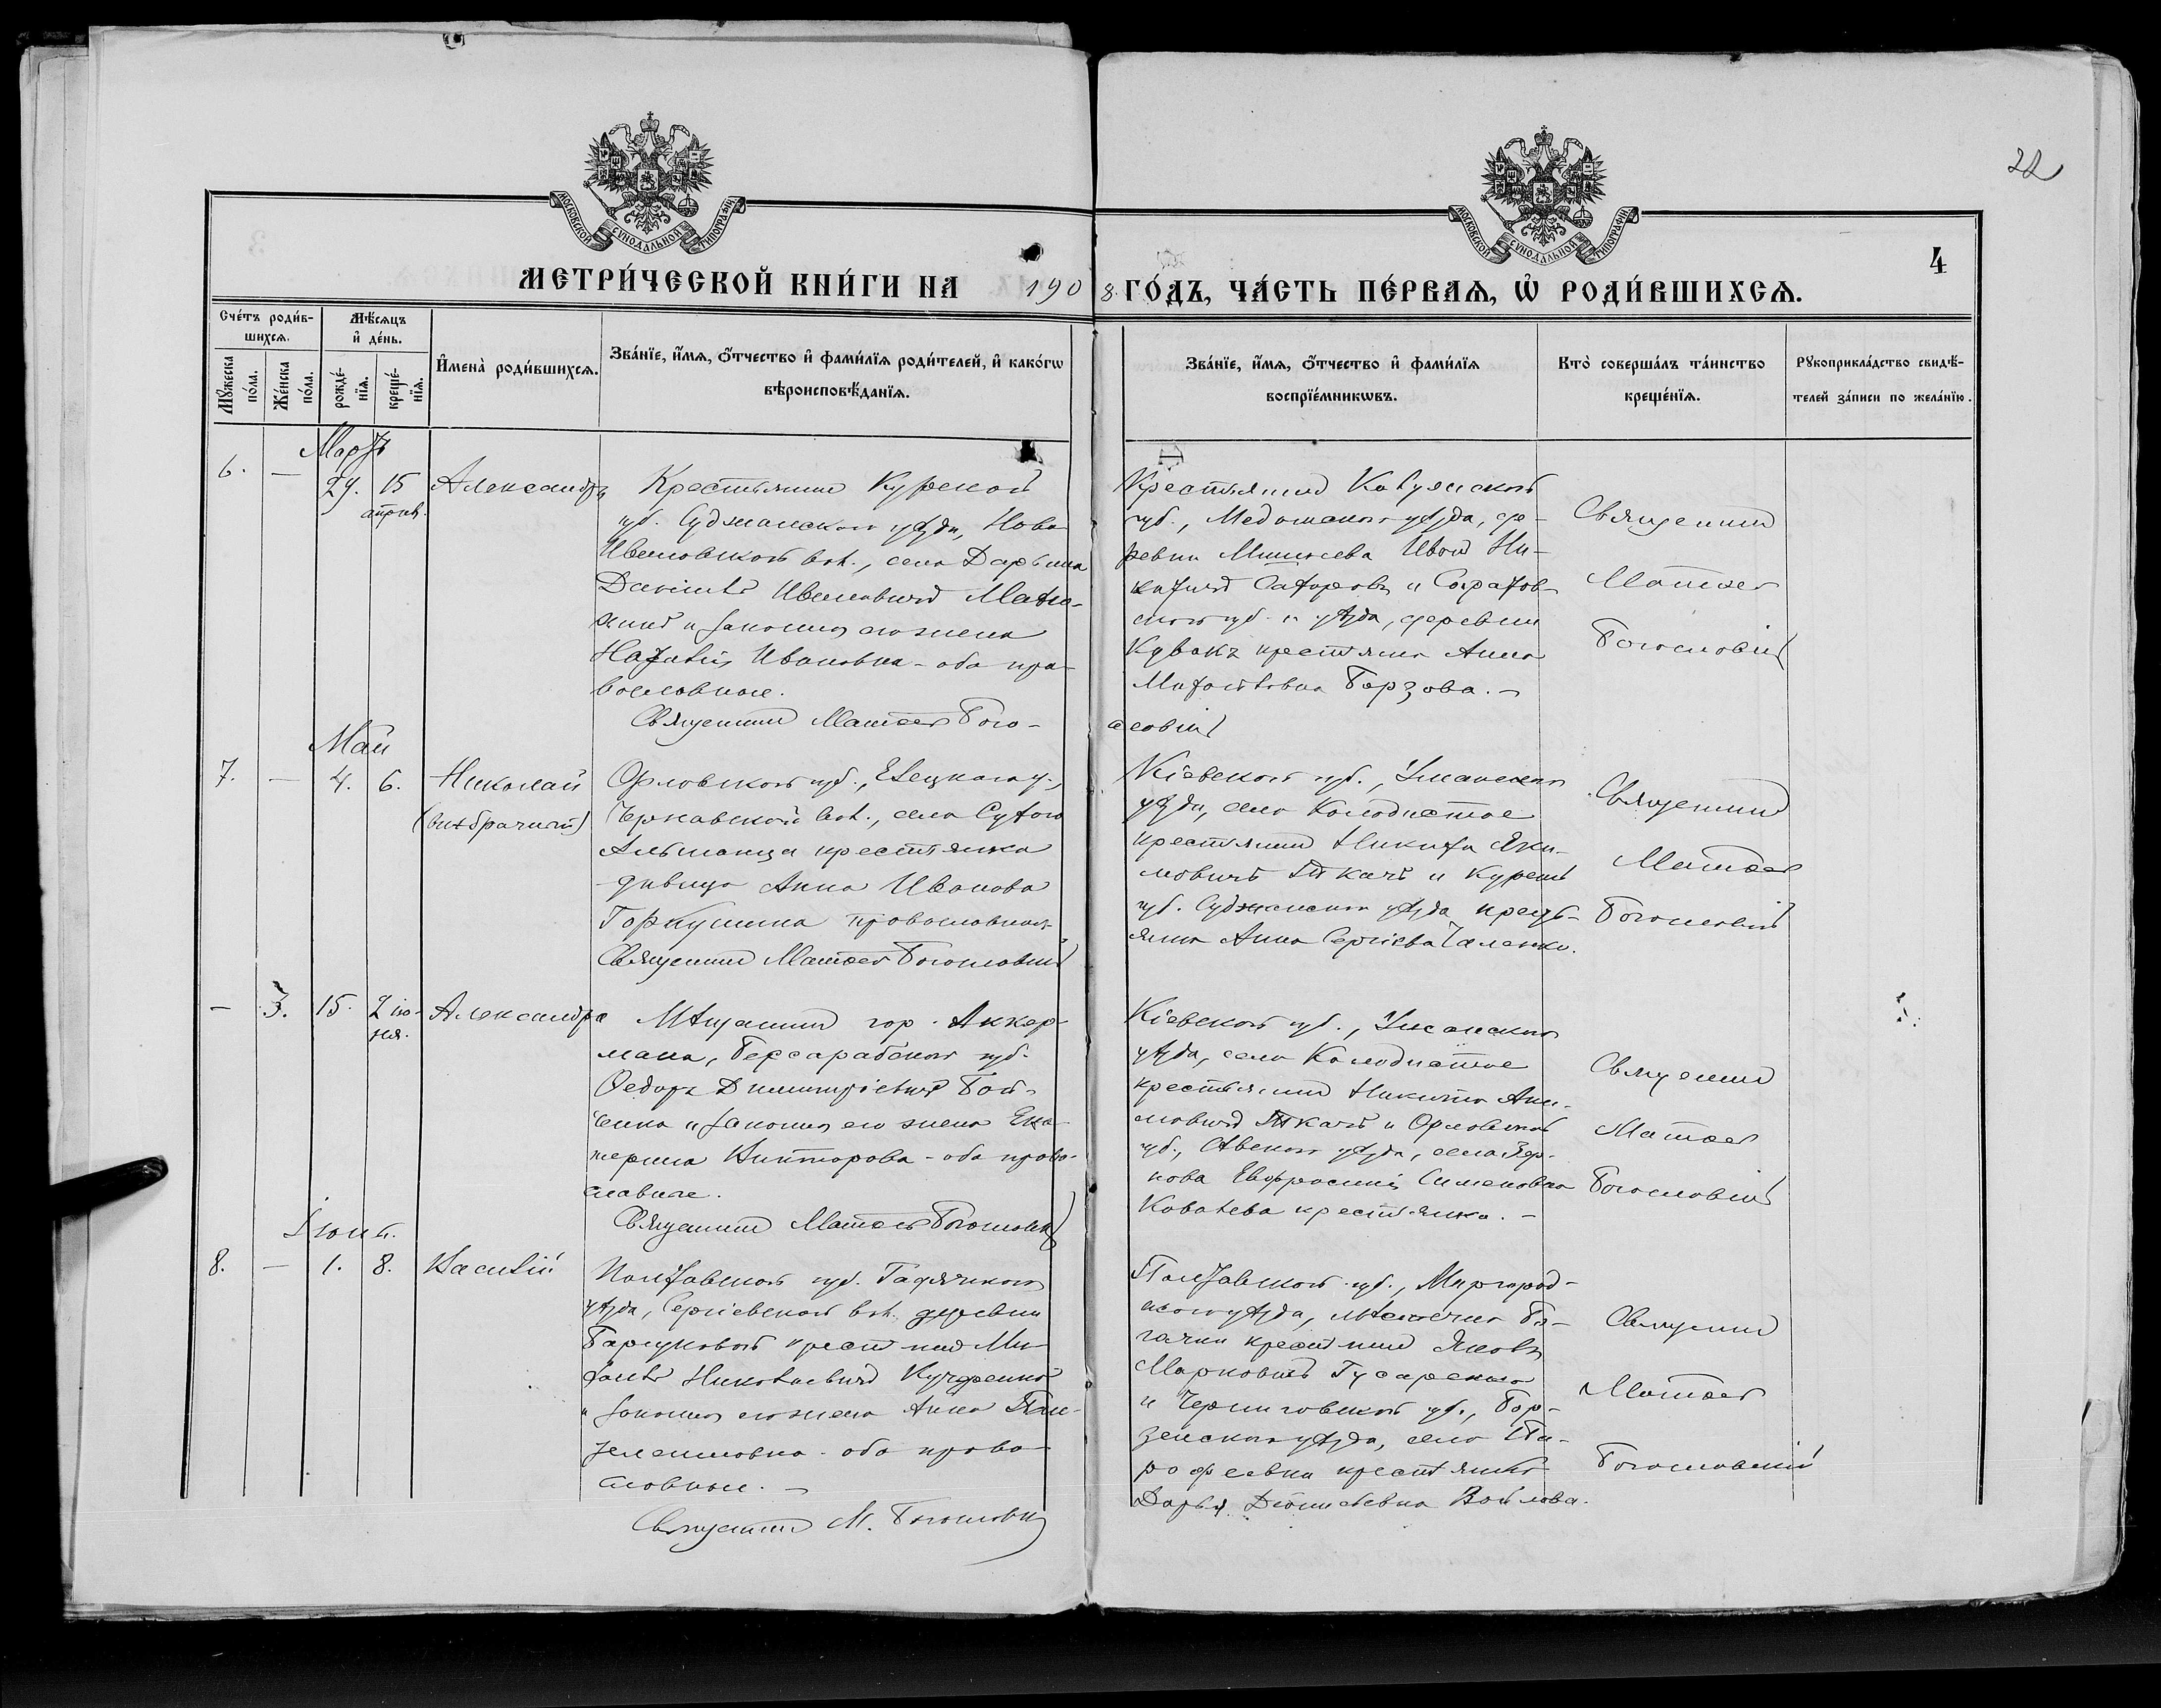 22
МОСКОВСКОЙ СѴНОДАЛЬНОЙ ТИПОГРАФІИ
МОСКОВСКОЙ СѴНОДАЛЬНОЙ ТИПОГРАФІИ
4
МЕТРИ́ЧЕСКОЙ КНИ́ГИ НА 1908 ГО́ДЪ, ЧА́СТЬ ПЕ́РВАѦ, Ѡ҆ РОДИ́ВШИХСѦ.
Сче́тъ роди́в-
шихсѧ.
Мꙋ́жеска
по́ла.
Же́нска
по́ла.
Мѣ́сѧцъ
и҆ де́нь.
рожде́-
нїѧ.
креще́-
нїѧ.
И҆мена̀ роди́вшихсѧ.
Зва́нїе, и҆́мѧ, ѻ҆́тчество и҆ фами́лїѧ роди́телей, и҆ како́гѡ
вѣроисповѣ́данїѧ.
Зва́нїе, и҆́мѧ, ѻ҆́тчество и҆ фами́лїѧ
воспрїе́мникѡвъ.
Кто̀ соверша́лъ та́инство
креще́нїѧ.
Рꙋкоприкла́дство свидѣ́-
телей за́писи по жела́нїю.
Мартъ
6. — 29. 15
апрѣл.
Александръ
Крестьянинъ Курской
губ. Суджанскаго уѣзда, Ново
Ивановской вол., села Дарьина
Даніилъ Ивановичъ
и законная его жена
Наталія Ивановна - оба пра-
вославные.
Священникъ Матвей Бого-
словскій
Крестьянинъ Калужской
губ., Медынскаго уѣзда, де-
ревни Мишнева Иванъ Ни-
китичъ и Саратов-
ской губ. и уѣзда, деревни
крестьянка Анна
Борзова. —
Священникъ
Матвей
Богословскій
Май
7. — 4. 6.
Николай
(внѣбрачный)
Орловской губ., Елецкаго у.,
Чернавской вол., села Сухого
Ольшанца крестьянка
дѣвица Анна Иванова
Горкушина православная
Священникъ Матвей Богословскій
Кіевской губ., Уманскаго
уѣзда, села Колодистое
крестьянинъ Никита Яки-
мовичъ Ткачъ и Курской
губ. Суджанскаго уѣзда кресть-
янка Анна Сергіева
Священникъ
Матвей
Богословскій
— 3. 15. 2 ію-
ня.
Александра
Мѣщанинъ гор. Аккер-
мана, Бессарабской губ.
Ѳедоръ Димитріевичъ Бой-
ченко и законная его жена Ека-
терина Викторова - оба право-
славные.
Священникъ Матвей Богословскій
Кіевской губ., Уманскаго
уѣзда, села Колодистое
крестьянинъ Никита Яки-
мовичъ Ткачъ и Орловской
губ., Сѣвскаго уѣзда, села Зер-
нова Евфросинія Симеоновна
Ковалева крестьянка. —
Священникъ
Матвей
Богословскій
Іюнь.
8. — 1. 8.
Василій
Полтавской губ. Гадячскаго
уѣзда, Сергіевской вол. деревни
крестьянинъ Ми-
хаилъ Николаевичъ Кучеренко
и законная его жена Анна Пан-
телеимовна - оба право-
славные. —
Священникъ М. Богословскій
Полтавской губ., Миргород-
скаго уѣзда, мѣстечка Бо-
гачки крестьянинъ Яковъ
Марковичъ Гусаренко
и Черниговской губ., Бор-
зенскаго уѣзда, села
крестьянка
Дарья Діонисіевна
Священникъ
Матвей
Богословскій